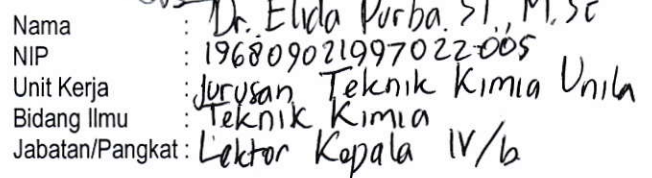 Nama : Dr. Elida Purba. ST., M.Sc
NIP : 196809021997022005
Unit Kerja : Jurusan Teknik Kimia Unila
Bidang Ilmu : Teknik Kimia
Jabatan/Pangkat : Lektor Kepala IV/b